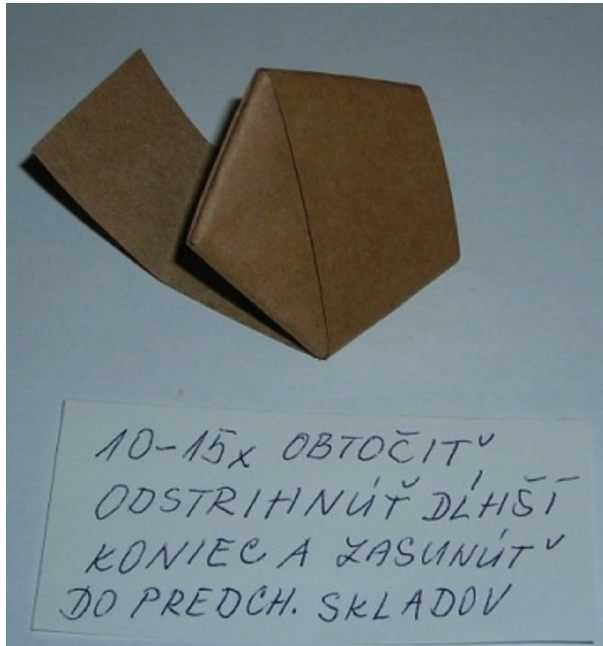 10-15x OBTOČIŤ
ODSTRIHNÚŤ DĹHŠÍ
KONIEC A ZASUNÚŤ
DO PREDCH. SKLADOV